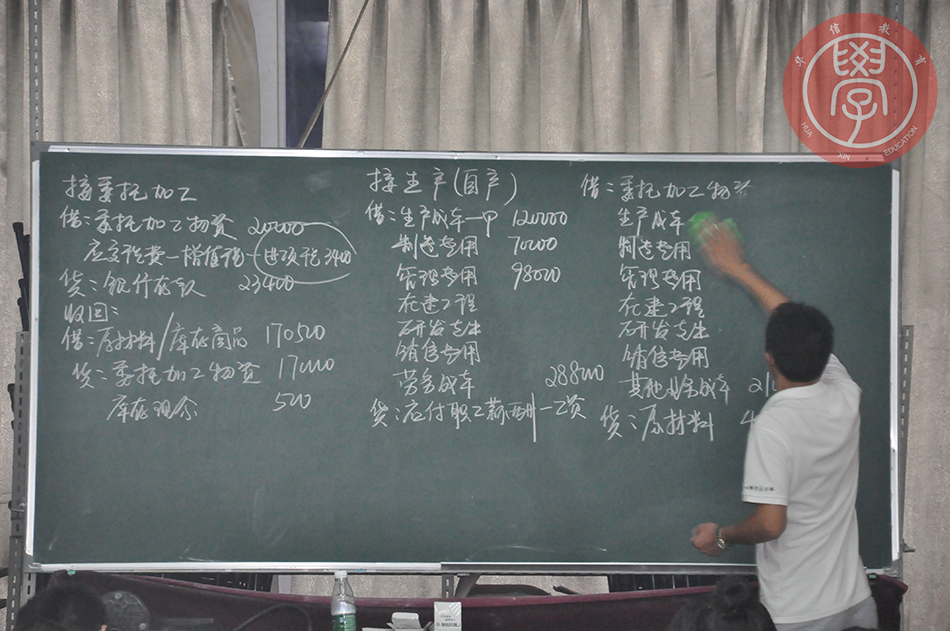 接委托加工
借:委托加工物资 20000
应交税费—增值税—进项税3400
贷:银行存款 23400
收回:
借:原材料/库存商品 170500
贷:委托加工物资 17000
库存现金 500
接生产(自产)
借:生产成本—甲 120000
制造费用 70000
管理费用 98000
在建工程
研发支出
销售费用
劳务成本 288000
贷:应付职工薪酬—工资
借:委托加工物资
生产成本
制造费用
管理费用
在建工程
研发支出
销售费用
其他业务成本
贷:原材料
华信教育
學
HUA XIN EDUCATION